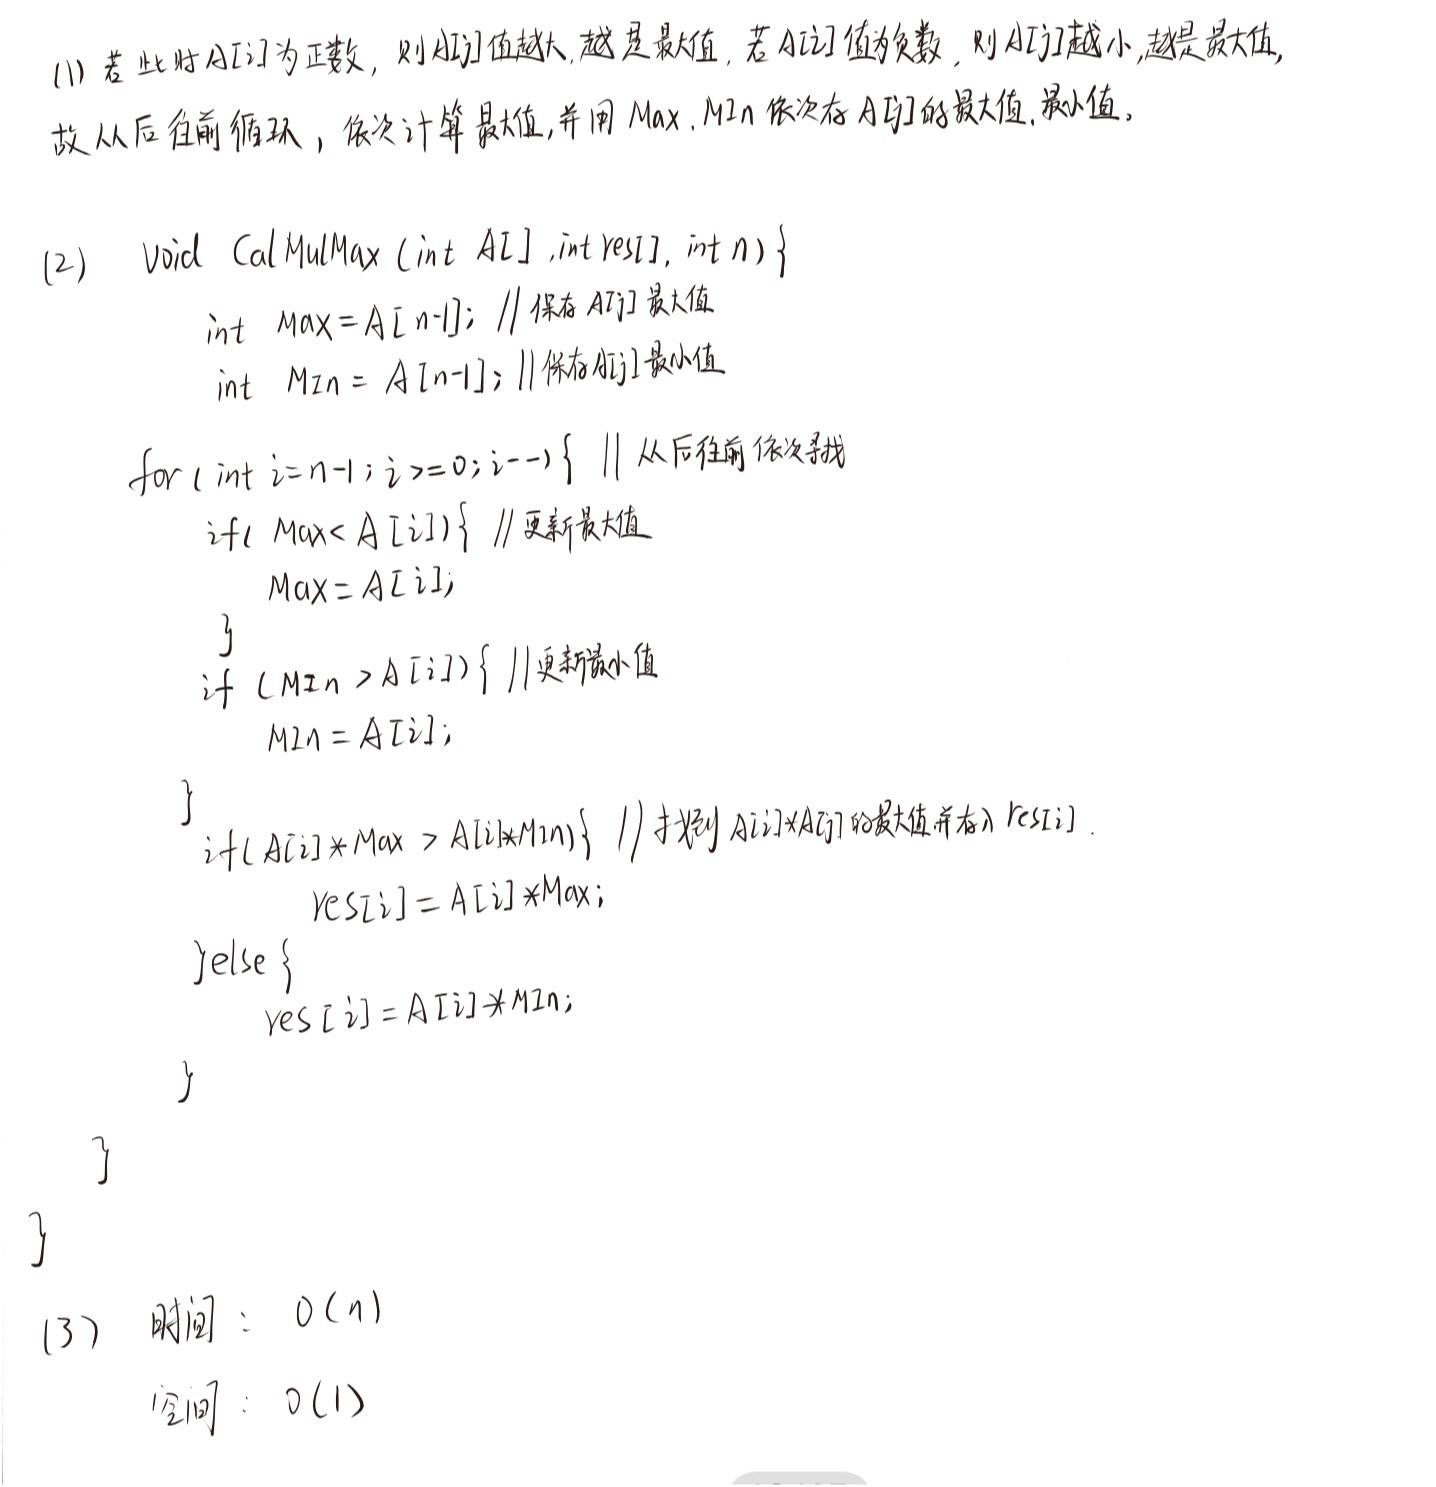 (1) 若此时A[i]为正数，则A[j]值越大,越是最大值,若A[i]值为负数,则A[j]越小,越是最大值,
故从后往前循环，依次计算最大值,并用Max、MIn依次存A[j]的最大值、最小值。
(2) void CalMulMax (int A[] ,int res[], int n) {
int Max=A[n-1]; //保存A[j]最大值
int MIn = A[n-1]; //保存A[j]最小值
for( int i=n-1; i>=0; i--) { //从后往前依次寻找
if( Max< A[i]) { //更新最大值
Max=A[i];
}
if (MIn >A[i]) { //更新最小值
MIn=A[i];
}
if(A[i]*Max > A[i]*MIn) { //找到A[i]*A[j]的最大值并存入res[i].
res[i]=A[i]*Max;
}else {
res[i]=A[i]*MIn;
}
}
}
(3) 时间: O(n)
空间: O(1)